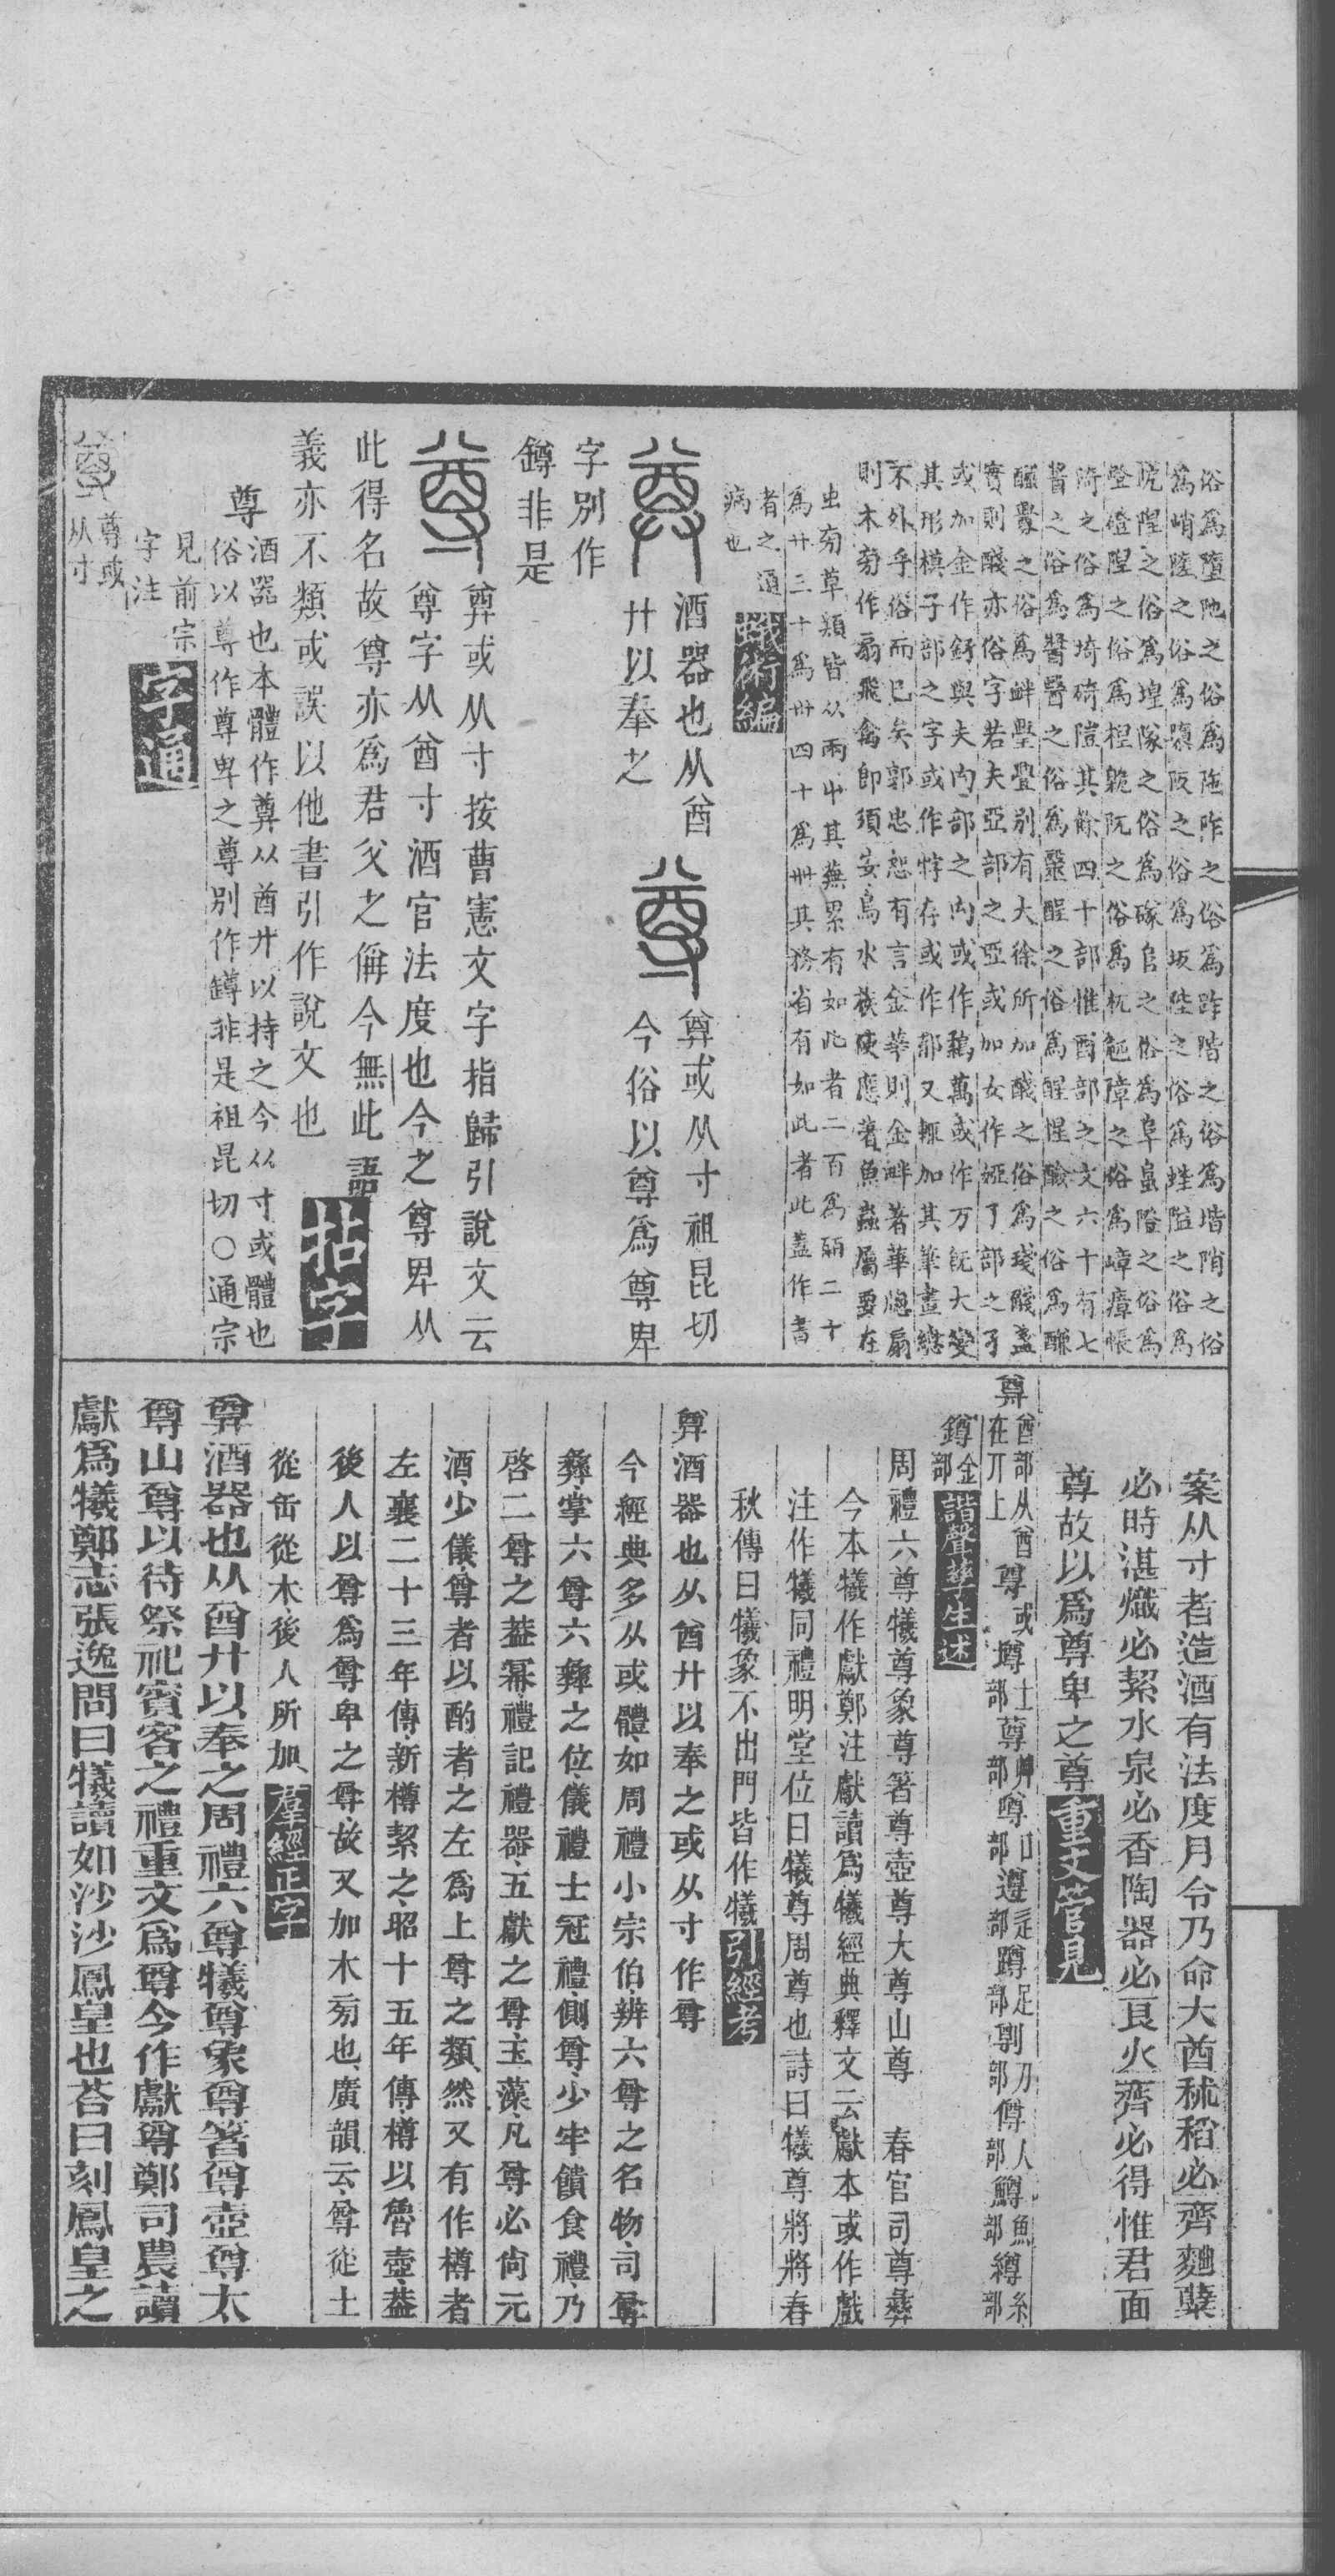 俗爲墮阤之俗爲陁阼之俗爲昨階之俗爲堦陗之俗
爲峭陸之俗爲隳阪之俗爲坂陛之俗爲䧙隘之俗爲
阬隍之俗爲堭隊之俗爲碌𠂤之俗爲阜𨺅隥之俗爲
墱磴隉之俗爲梶䡄阮之俗爲杬𨸝障之俗爲嶂瘴帳
陭之俗爲埼碕隑其餘四十部惟酉部之文六十有七
醬之俗爲醤醫之俗爲毉醒之俗爲醒惺醶之俗爲醶
釁之俗爲衅舋亹別有大徐所加醆之俗爲琖醆盞
實則醆亦俗字若夫亞部之亞或加女作婭丁部之
或加金作釘與夫内部之禸或作䅼萬或作万旣大變
其形模子部之字或作牸存或作郁又輒加其筆畫總
不外乎俗而已矣郭忠恕有言金華則金畔著華牕扇
則木旁作扇飛禽卽須安鳥水族便應著魚蟲屬要在
虫旁草類皆从兩屮其蕪累有如此者二百爲皕二十
爲廿三十爲卅四十爲卌其務省有如此者此蓋作書
者之通
病也 蛾術編
尊 酒器也从酋 尊 尊或从寸祖昆切
廾以奉之 今俗以尊爲尊卑
字別作
罇非是
尊 𢍜或从寸按曹憲文字指歸引說文云
尊字从酋寸酒官法度也今之尊卑从
此得名故尊亦爲君父之偁今無此語
義亦不類或誤以他書引作說文也 拈字
尊 酒器也本體作𢍜从酋廾以持之今从寸或體也
俗以尊作尊卑之尊別作罇非是祖昆切○通宗
見前宗
字注 字通
尊 尊或
从寸
案从寸者造酒有法度月令乃命大酋秫稻必齊麯櫱
必時湛熾必絜水泉必香陶器必良火齊必得惟君面
尊故以爲尊卑之尊 重文管見
𢍜 酋部从酋在丌上 尊或 墫士部 蓴艸部 噂口部 遵辵部 蹲足部 剸刀部 僔人部 鱒魚部 縛糸部
鐏金部 諧聲孳生述
周禮六尊犧尊象尊箸尊壺尊大尊山尊 春官司尊彝
今本犧作獻鄭注獻讀爲犧經典釋文云獻本或作戲
注作犧同禮明堂位曰犧尊周尊也詩曰犧尊將將春
秋傳曰犧象不出門皆作犧 引經考
𢍜酒器也从酋廾以奉之或从寸作尊
今經典多从或體如周禮小宗伯辨六尊之名物司尊
彝掌六尊六彝之位儀禮士冠禮側尊少牢饋食禮乃
啓二尊之葢冪禮記禮器五獻之尊玉藻凡尊必尙元
酒少儀尊者以酌者之左爲上尊之類然又有作樽者
左襄二十三年傳新樽絜之昭十五年傳樽以魯壺葢
後人以尊爲尊卑之尊故又加木旁也廣韻云尊從土
從缶從木後人所加 羣經正字
𢍜酒器也从酋廾以奉之周禮六尊犧尊象尊箸尊壺尊太
尊山尊以待祭祀賓客之禮重文爲尊今作獻尊鄭司農讀
獻爲犧鄭志張逸問曰犧讀如沙沙鳳皇也荅曰刻鳳皇之